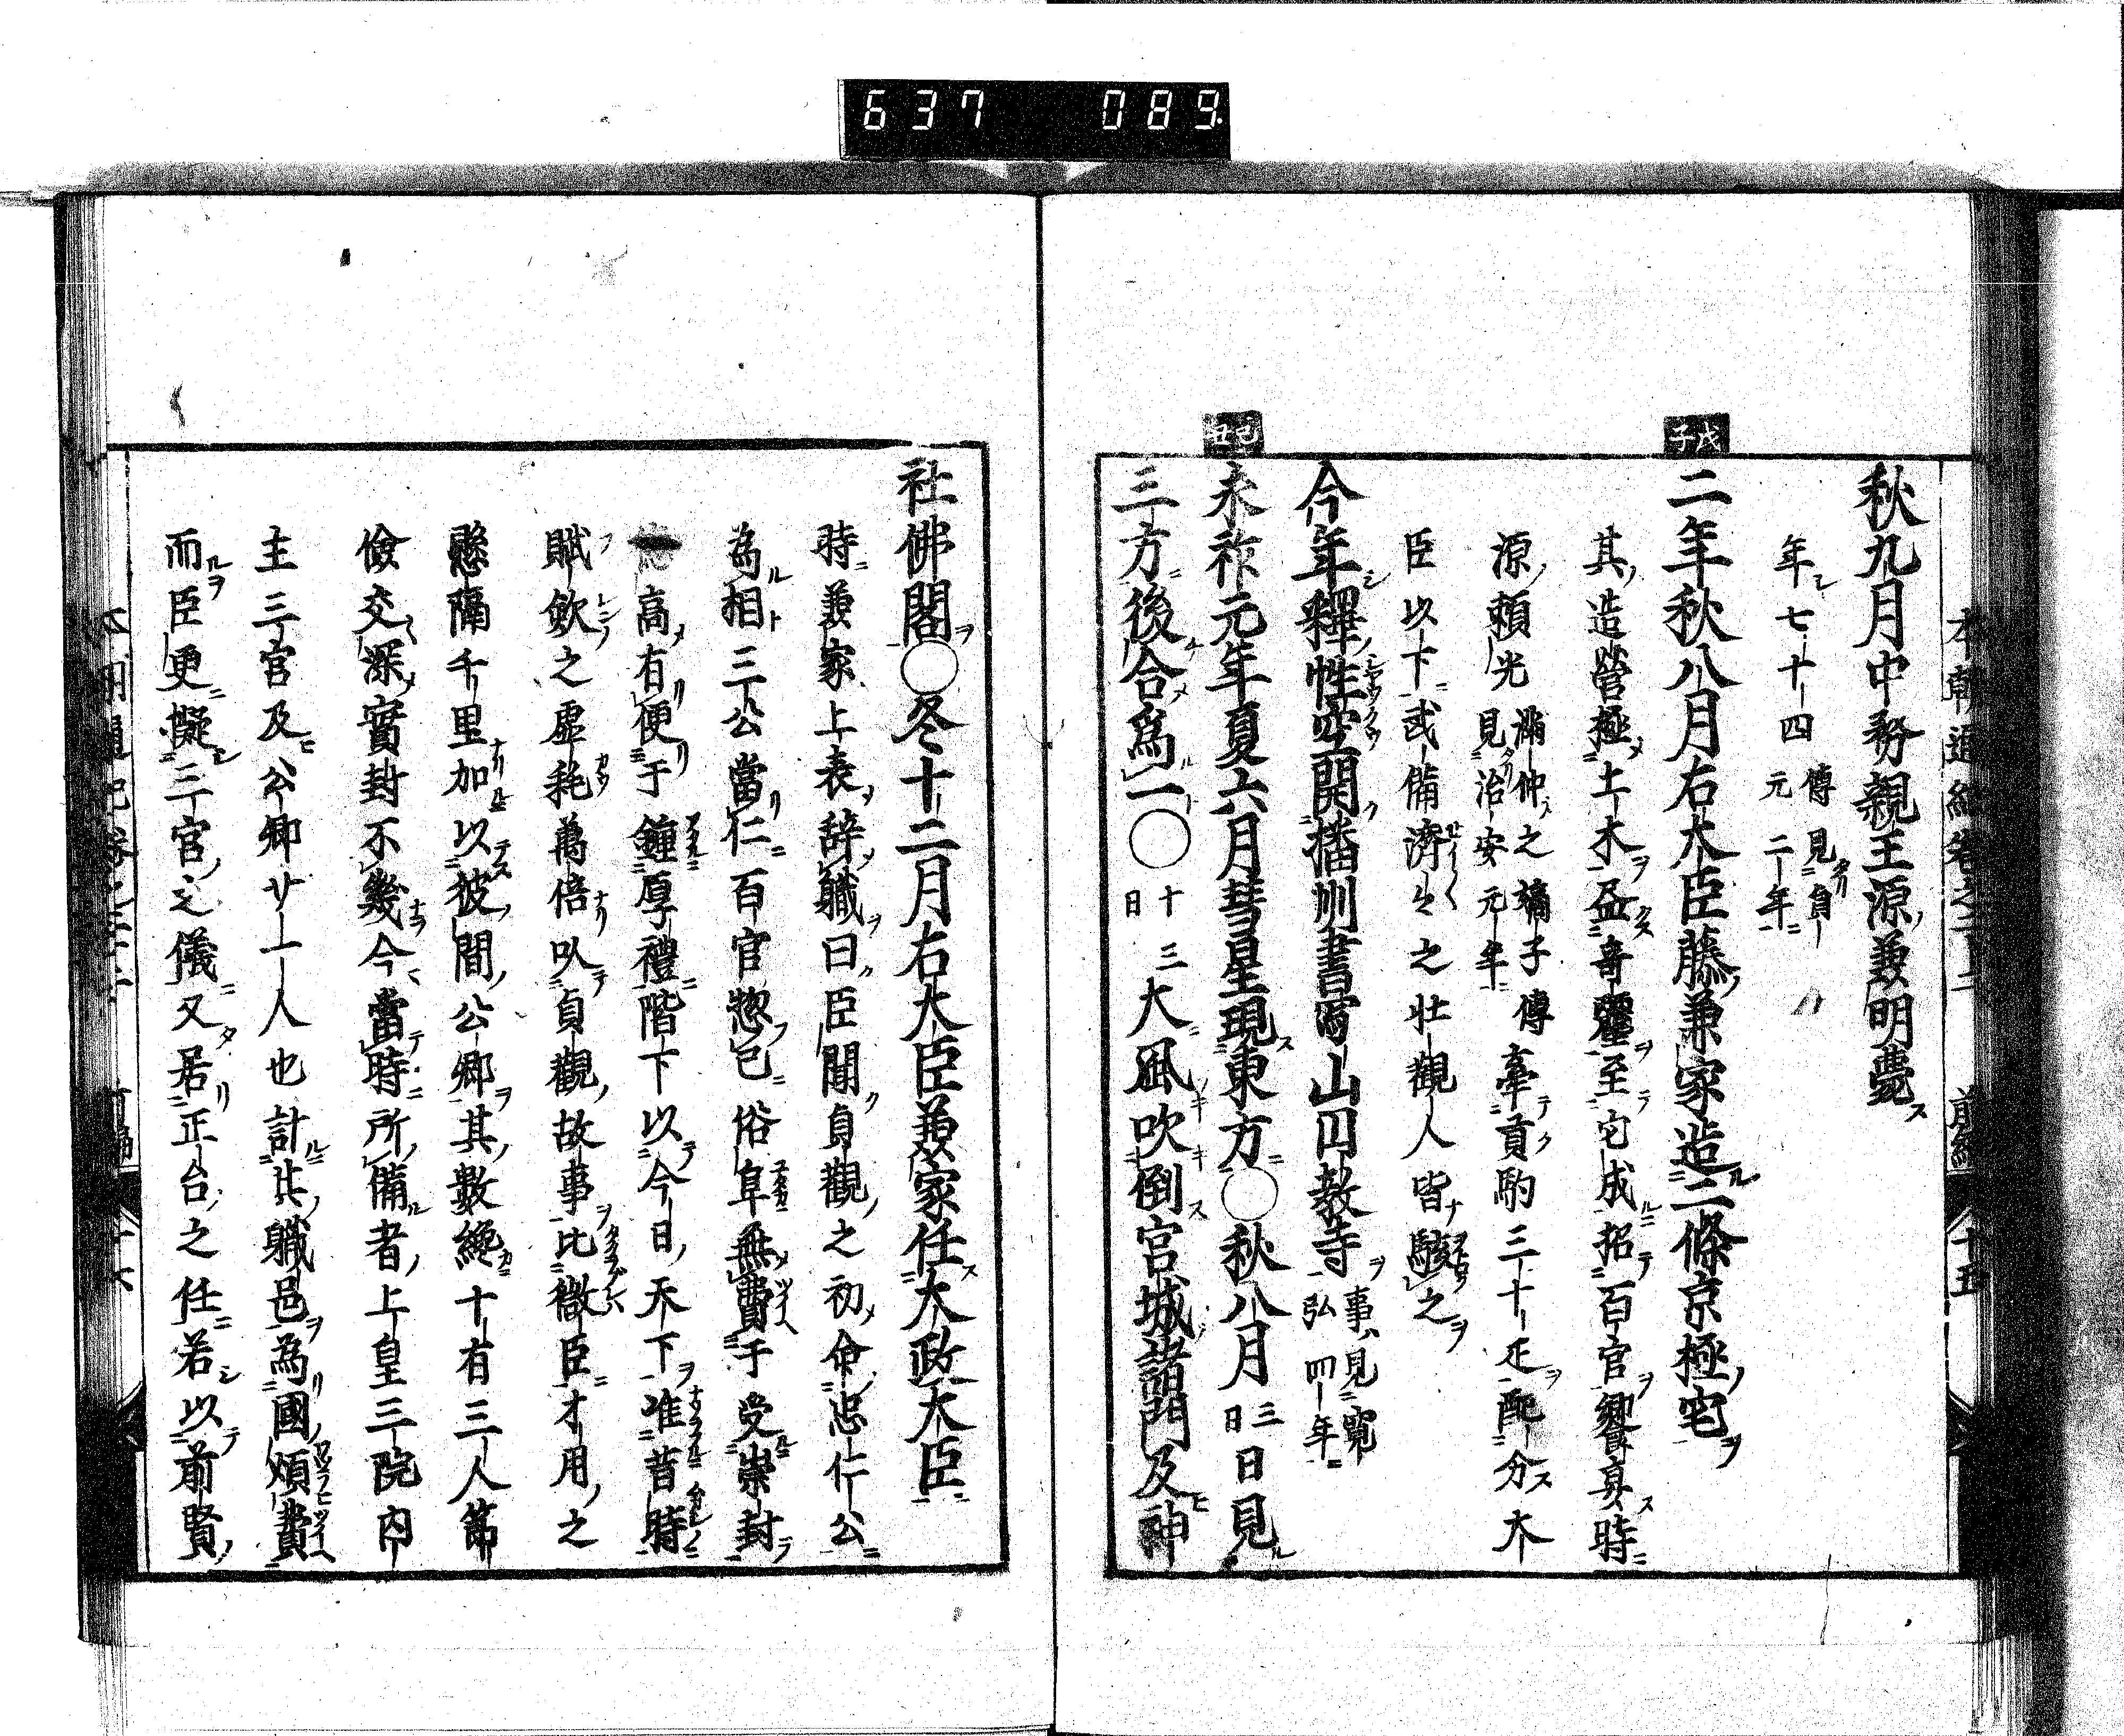 637 089.
本朝通紀卷之二十二 前編 十五
秋九月中務親王源兼明薨
年七十四 傳見貞元二年
戊子
二年秋八月右大臣藤兼家造二條京極宅
其造營極土木盡奇麗至宅成招百官饗宴時
源頼光 滿仲之嫡子傳見治安元年 牽貢駒三十疋配分大
臣以下武備濟々之壯觀人皆駭之
今年釋性空開播州書寫山円教寺 事見寬弘四年
己丑
永祚元年夏六月彗星現東方○秋八月 三日 日見
三方後合爲一○ 十三日 大風吹倒宮城諸門及神
社佛閣○冬十二月右大臣兼家任太政大臣
時兼家上表辞職曰臣聞貞觀之初命忠仁公
為相三公當仁百官惣已俗阜無費于受崇封
高有便于鍾厚禮階下以今日天下唯昔時
賦斂之虛耗萬倍以貞觀故事比微臣才用之
懸隔千里加以彼間公卿其數纔十有三人節
儉交深實封不幾今當時所備者上皇三院内
主三官及公卿廿一人也計其職邑為國煩費
而臣更擬三官之儀又居正台之任若以前賢